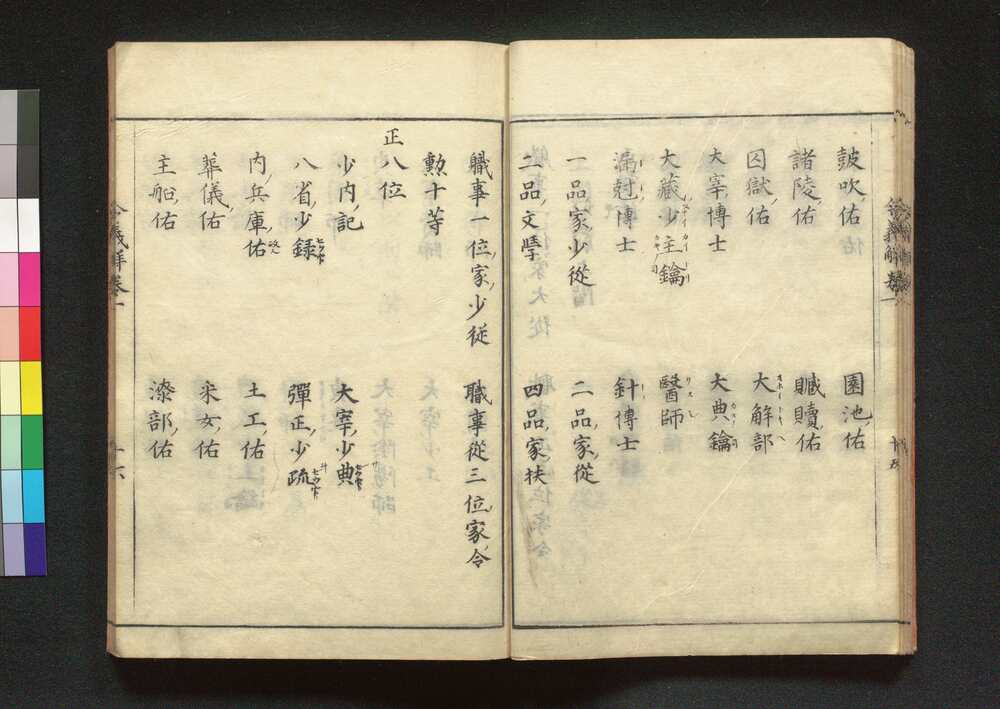 鼓吹佑 園池佑
諸陵佑 贓贖佑
囚獄佑 大解部
大宰博士 大典鑰
大藏少主鑰 醫師
漏尅博士 針博士
一品家少從 二品家從
二品文學 四品家扶
職事一位家少從 職事從三位家令
勲十等
正八位
少內記 大宰少典
八省少録 彈正少疏
內兵庫佑 土工佑
葬儀佑 采女佑
主船佑 漆部佑
令義解卷一